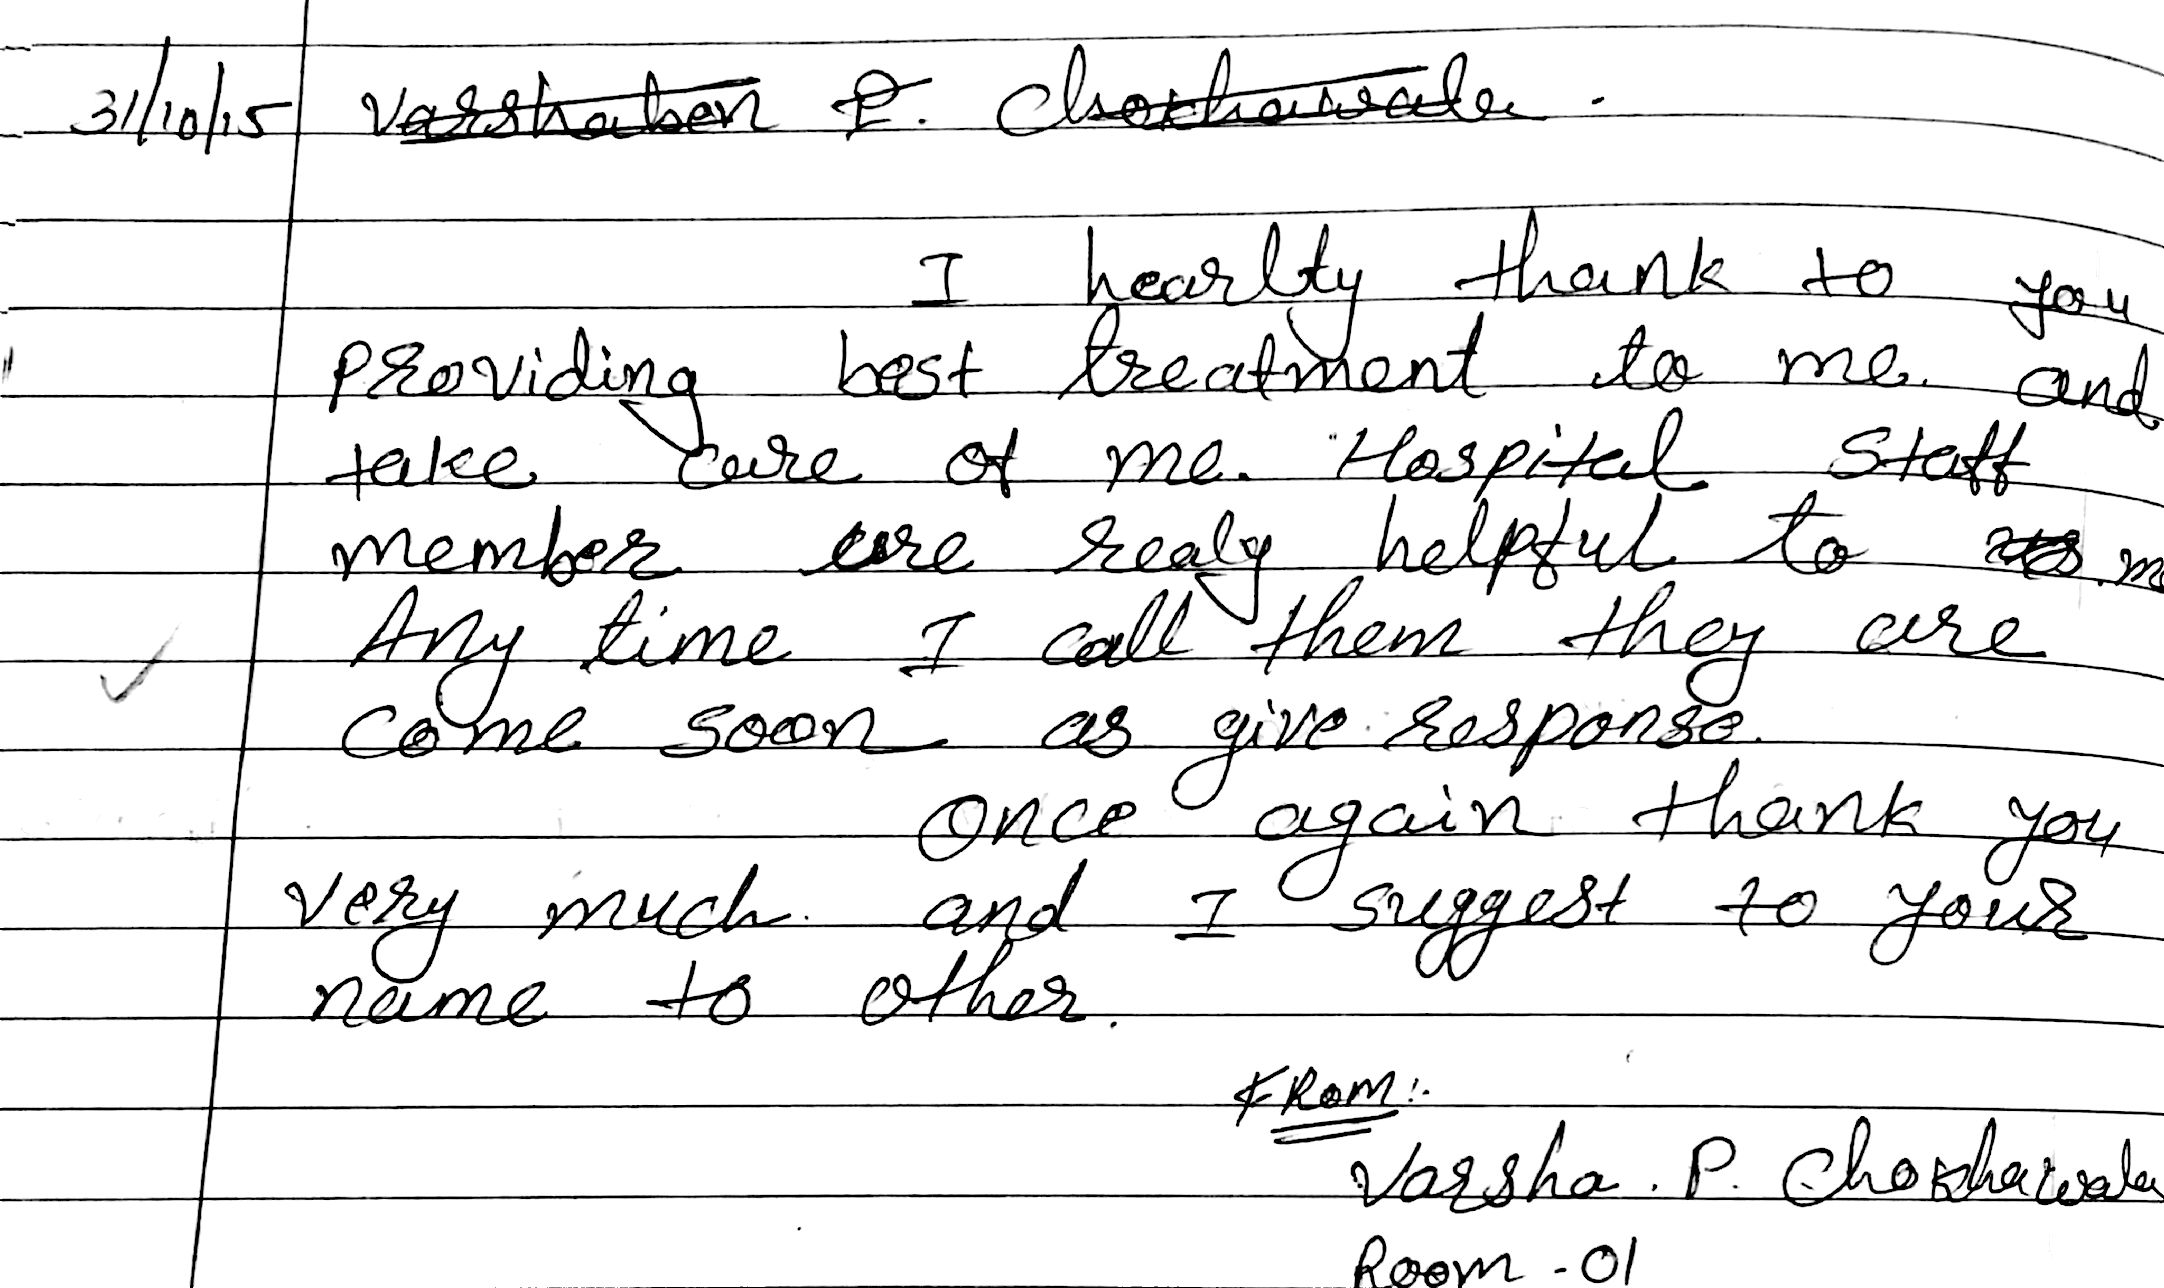 31/10/15 Varshaben P. Chokhawala.
I hearlty thank to you
providing best treatment to me. and
take care of me. Hospital Staff
member are realy helpful to me
Any time I call them they are
come soon as give response.
Once again thank you
very much. and I suggest to your
name to other.
FROM:-
Varsha. P. Chokhawala
Room-01